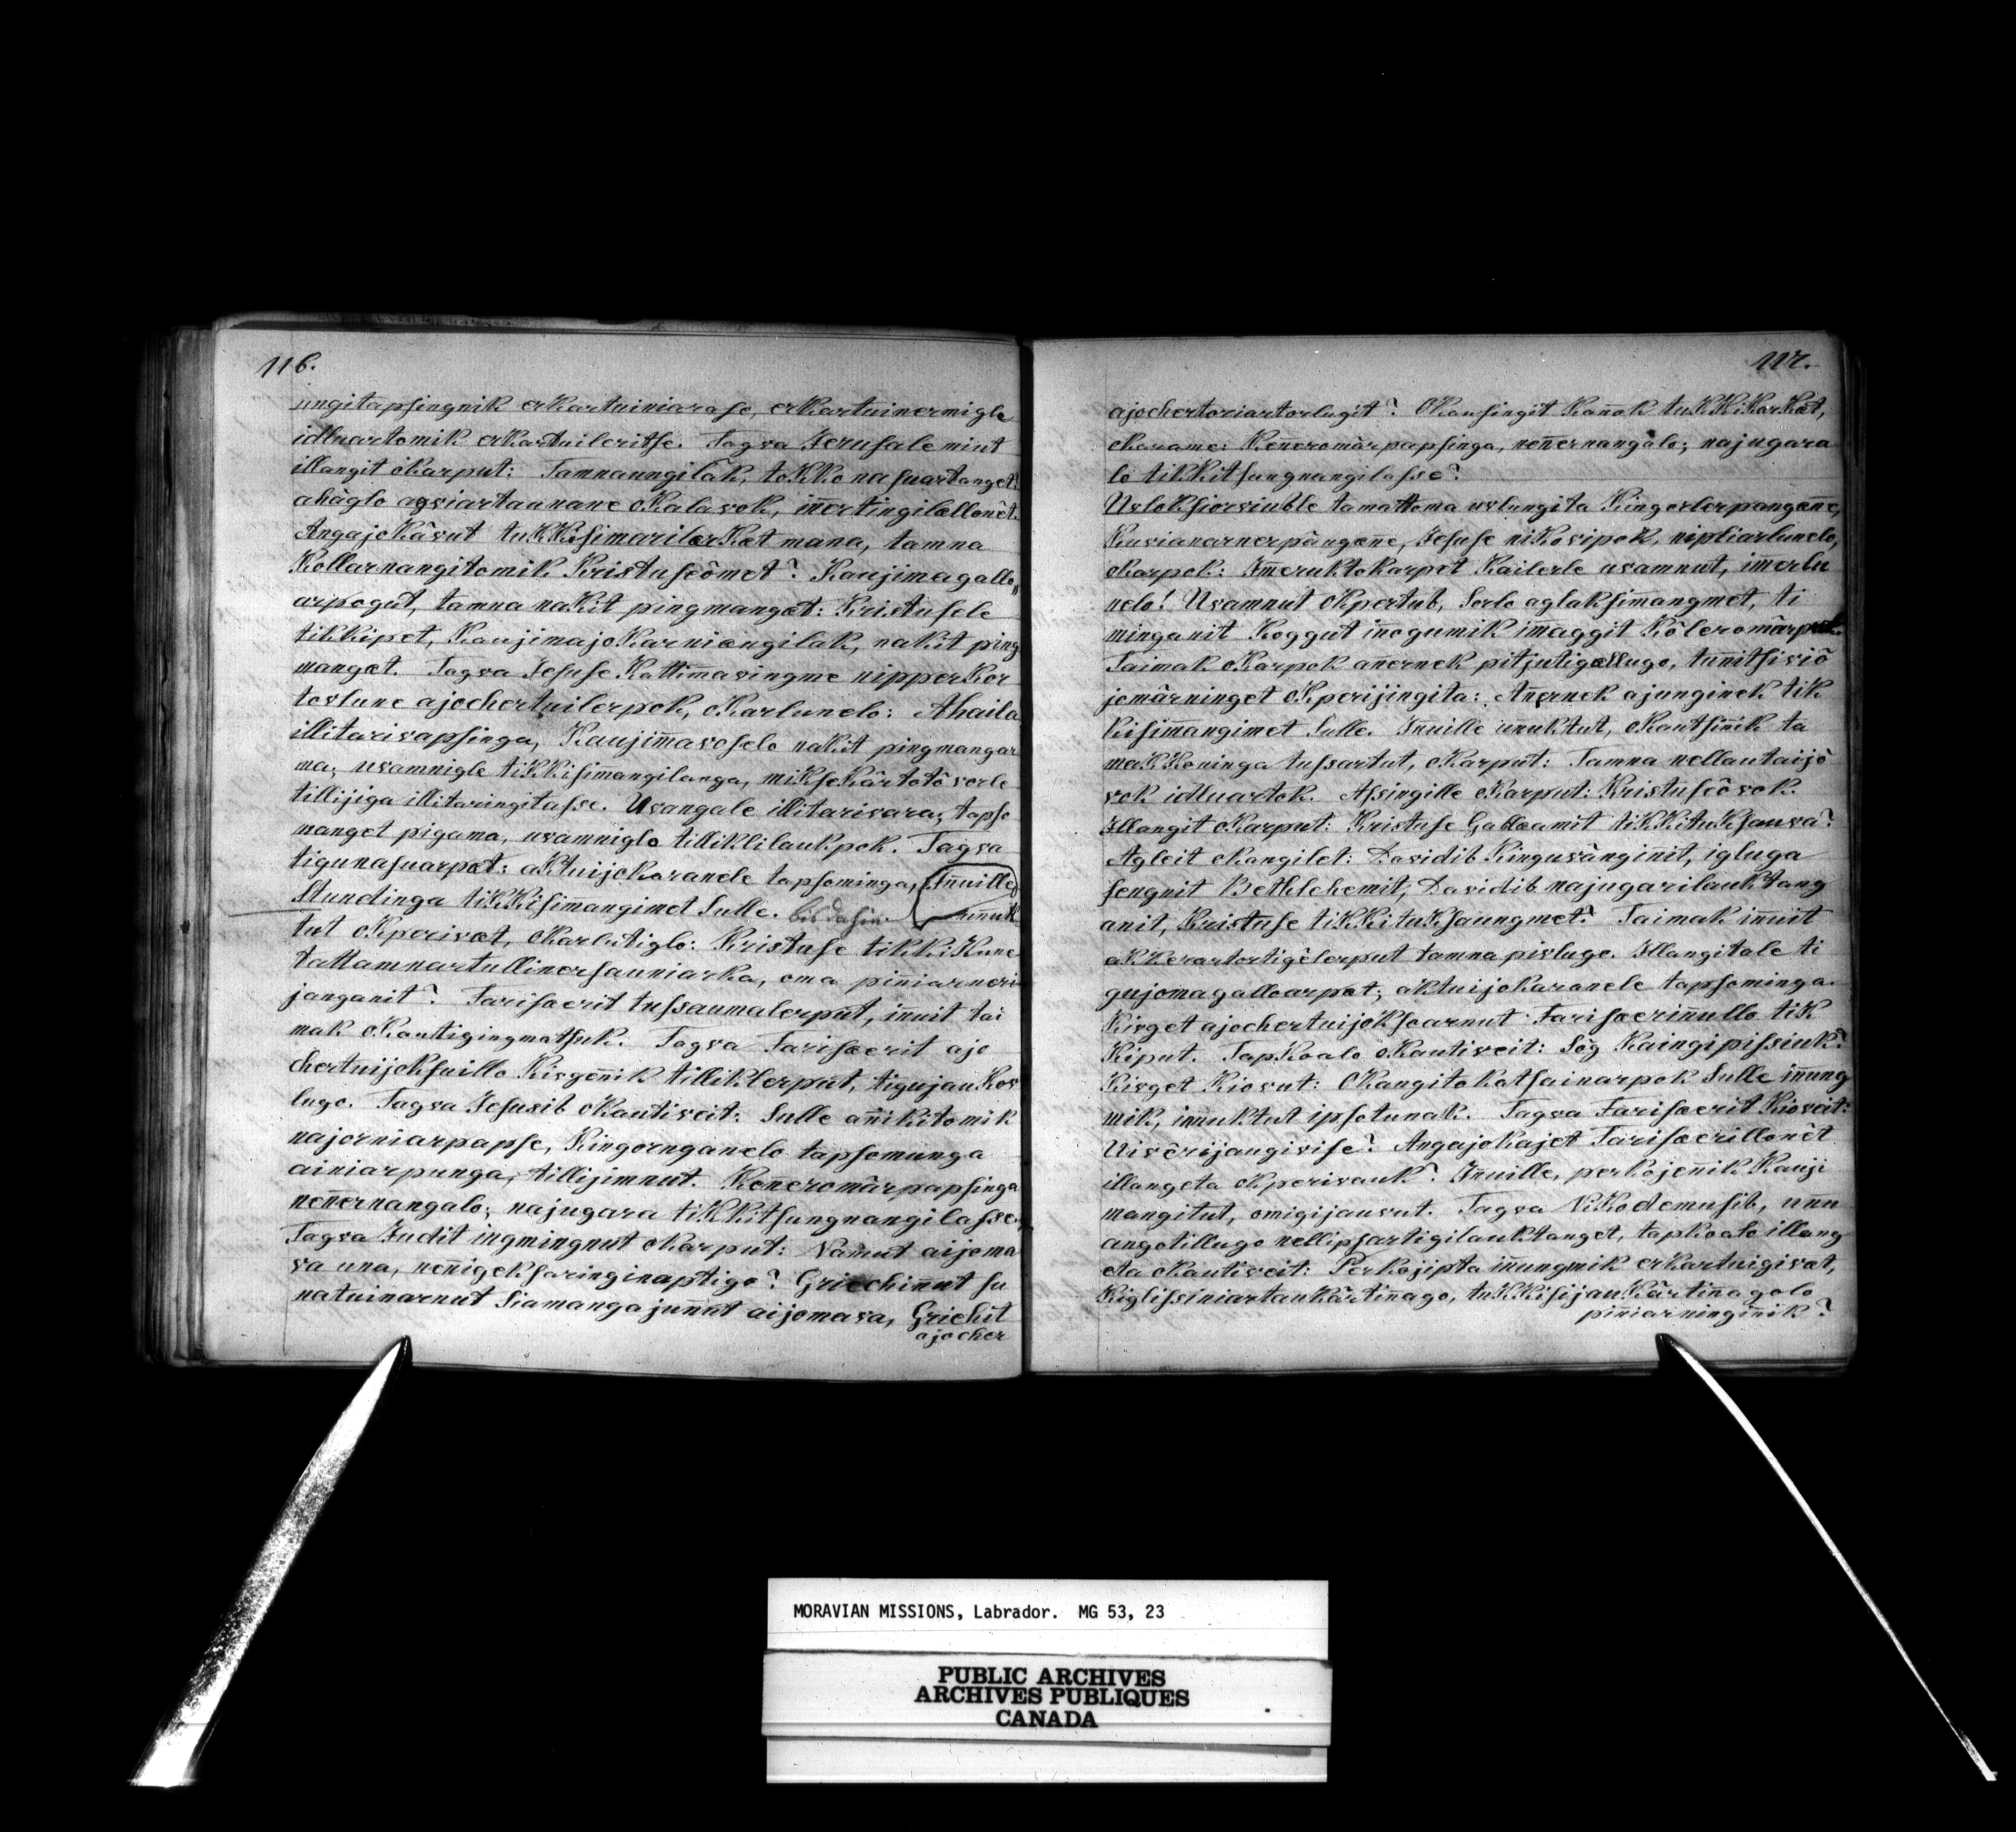 116.
ungitapsingnik erkartuiniarase, erkartuinermigle
idluartomik erkartuileritse. Tagva Jerusalemiut
illangit okarput: Tamnaungilak, tokkonasuartanget?
ahâglo agviartaunane okalavok, inertingilællonêt.
Angajokâvut tukkisimarilærkæt mana, tamna
Kollarnangitomik Kristuseômet? Kaujimagallo„
arpogut, tamna nakit pingmangæt: Kristusele
tikkipet, kaujimajokarniængilak, nakit ping
mangæt. Tagva Jesuse kattimavingme nipperkor
tovlune ajochertuilerpok, okarlunelo: Ahaila
illitarivapsinga, kaujimavoselo nakit pingmangar
ma; uvamnigle tikkisimangilanga, miksekârtotôvorle
tillijiga illitaringitasse. Uvangale illitarivara; tapso
nanget pigama, uvamniglo tilliklilaukpok. Tagva
tigunasuarpæt: aktuijokaranele tapsominga,
Stundinga tikkisimangimet sulle. bis dahin. Innuille unuk
tut okperivæt, okarlutiglo: Kristuse tikkikune
tattamnartullinersauniarka, oma piniarneri
janganit? Farisærit tussaumalerput, innuit tai
mak okautigingmatsuk. Tagva Farisærit ajo
chertuijoksuillo kivgennik tilliklerput, tigujaukov
lugo. Tagva Jesusib okautiveit: Sulle annikitomik
najorniarpapse, kingornganelo tapsomunga
ainiarpunga, tillijimnut. Kenneromârpapsinga
nennernangalo; najugara tikkitsungnangilasse.
Tagva Judit ingmingnut okarput: Namut aijoma
va una, nennigeksaringinaptigo? Griechinnut su
natuinarnut siamangajunnut aijomava, Griechit
ajocher
117.
ajochertoriartorlugit? Okausingit kannok tukkikarkæt,
okarame: Kenneromârpapsinga, nennernangalo; najugara
lo tikkitsungnangilasse?
Uvloksiorviuble tamattoma uvlungita kingorlerpangenne,
kuvianarnerpângenne, Jesuse nikovipok, nipliarlunelo,
okarpok: Imeruktokarpet kailerle uvamnut, imerlu
nelo! Uvamnut okpertub, sorlo aglaksimangmet, ti
minganit koggut innogumik imaggit kôleromârput.
Taimak okarpok annernek pitjutigællugo, tunnitsiviô
jomârninget okperijingita: Annernek ajunginek tik
kisimangimet sulle. Innuille unuktut, okautsinnik ta
makkoninga tussartut, okarput: Tamna nellautaijô
vok idluartok. Assingille okarput: Kristuseôvok.
Illangit okarput: Kristuse Galilæamit tikkituksauva?
Agleit okangilet: Davidib kinguvânginnit, igluga
sengnit Bethlehemit, Davidib najugarilauktang
anit, Kristuse tikkituksaungmet? Taimak innuit
akkerartortigêlerput tamna pivlugo. Illangitale ti
gujomagalloarpæt; aktuijokaranele tapsominga.
Kivget ajochertuijoksoarnut Farisærinnullo tik
kiput. Tapkoalo okautiveit: Sôg kaingipissiuk?
Kivget kiovut: Okangitokatsainarpok sulle innung
mik, innuktut ipsotunak. Tagva Farisærit kioveit:
Uivêrijaugivise? Angajokajet Farisærillonêt
illangeta okperivauk? Innuille, perkojennik kauji
mangitut, omigijauvut. Tagva Nikodemusib, unu
angotillugo nellipsartigilauktanget, tapkoalo illang
eta okautiveit: Perkojipta innungmik erkartuigivæt,
kiglissiniartaukârtinnago, tukkisijaukârtinnagolo
piniarninginnik?
MORAVIAN MISSIONS, Labrador. MG 53, 23
PUBLIC ARCHIVES
ARCHIVES PUBLIQUES
CANADA